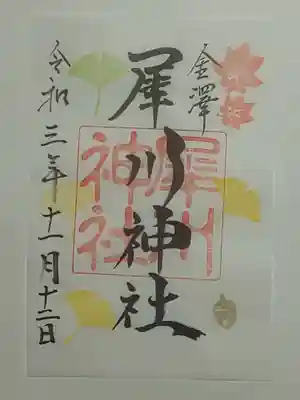 金澤
犀川神社
犀川神社
令和三年十一月十二日